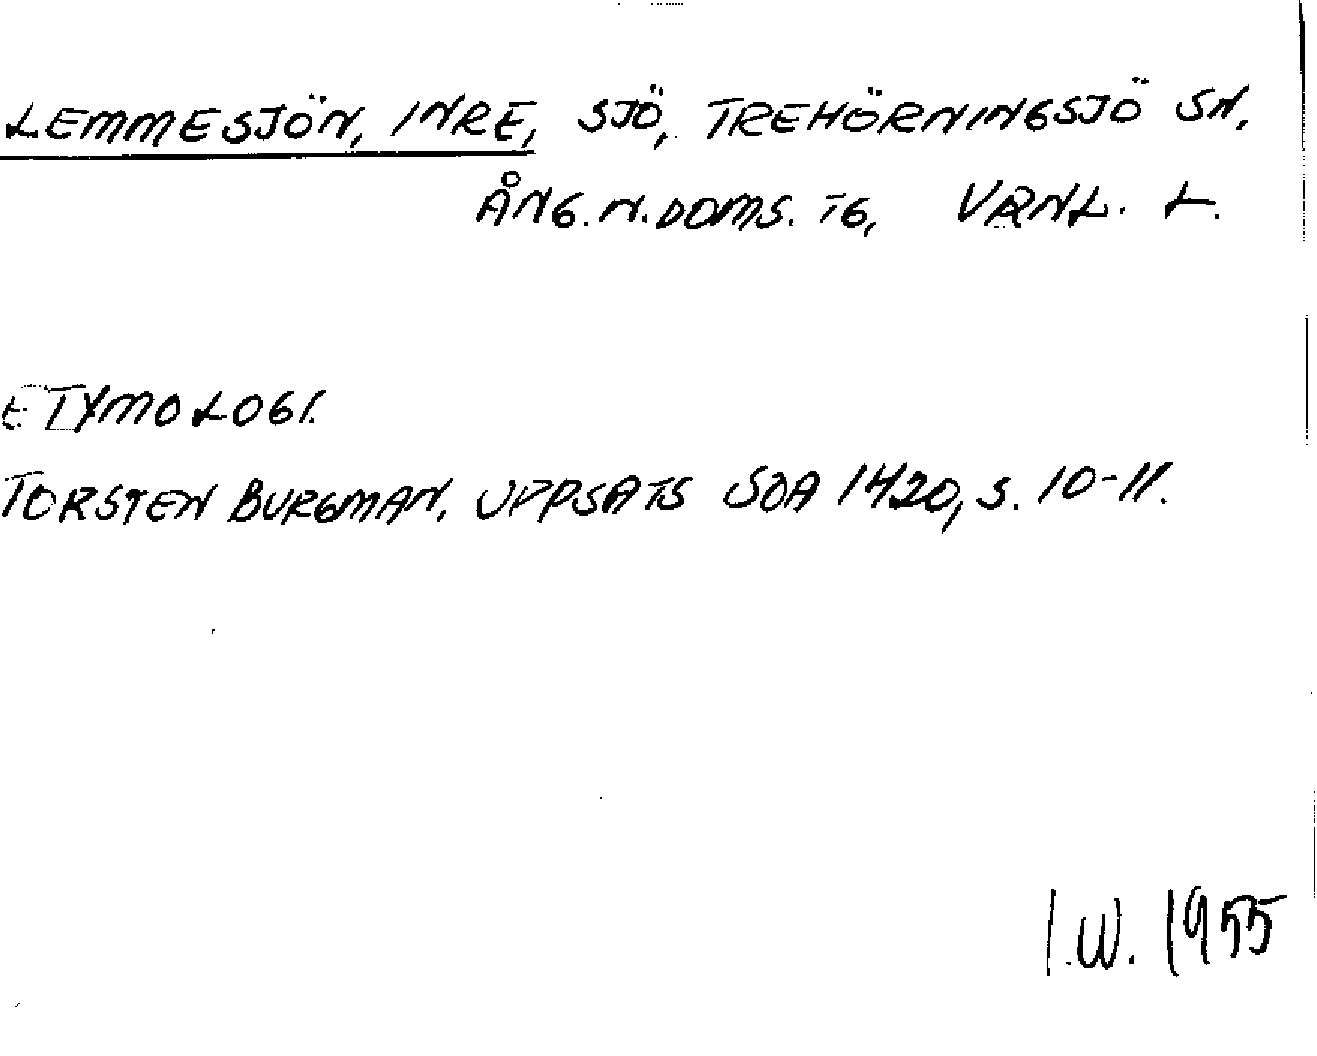 LEMMESJÖN, INRE, SJÖ, TREHÖRNINGSJÖ SN,
ÅNG. N. DOMS. TG, VRNL. L.
ETYMOLOGI.
TORSTEN BURGMAN, UPPSATS SOA 1420, S. 10-11.
I.W. 1955